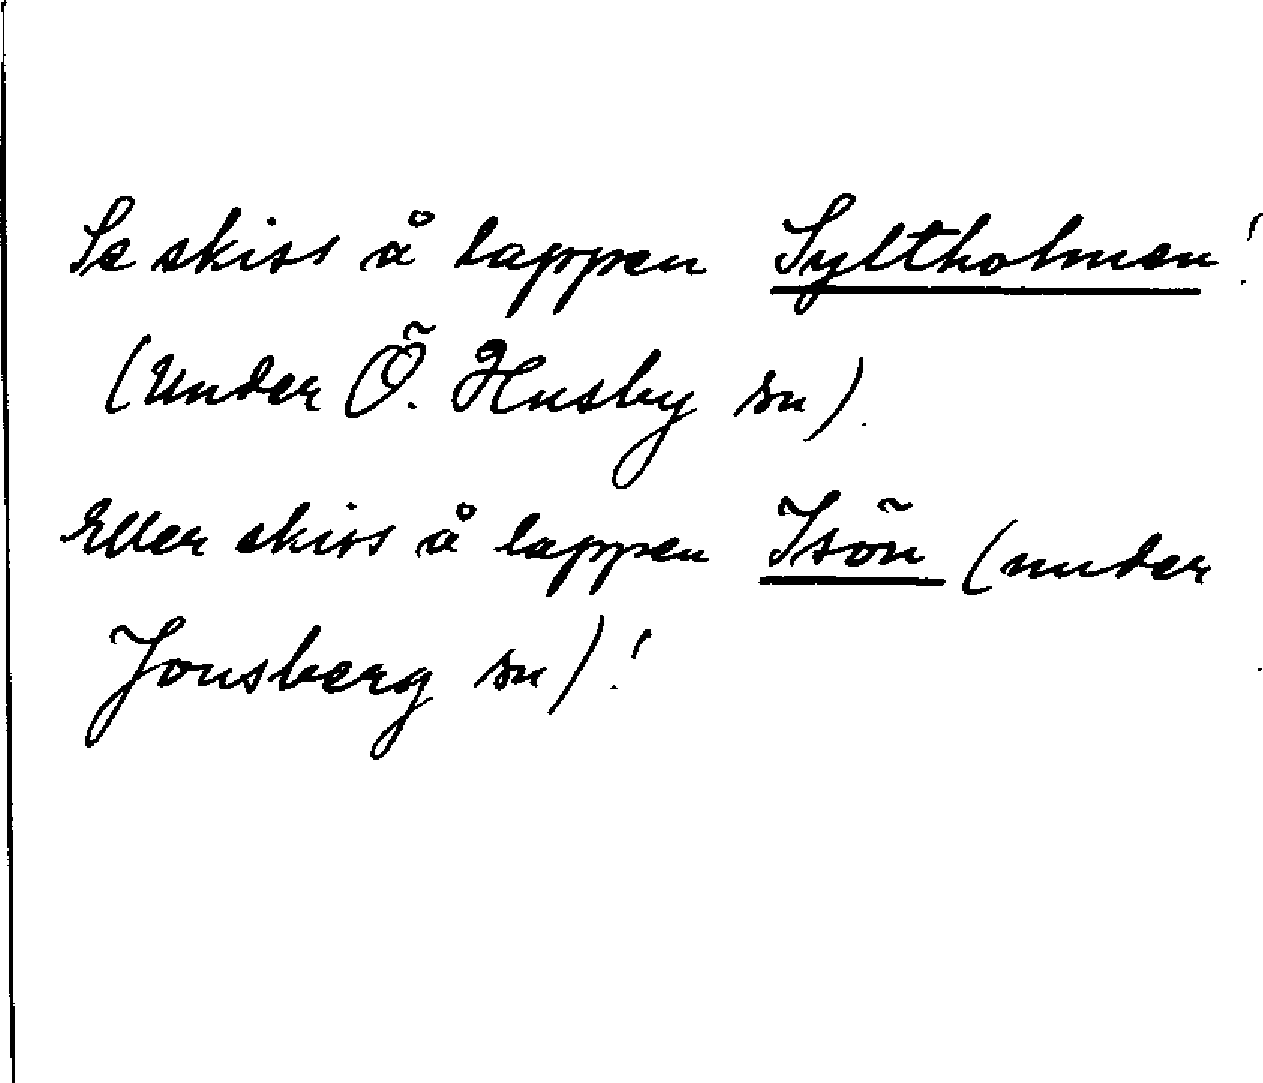 Se skiss å lappen Syltholmen!
(Under Ö. Husby sn).
Eller skiss å lappen Isön (under
Jonsberg sn)!